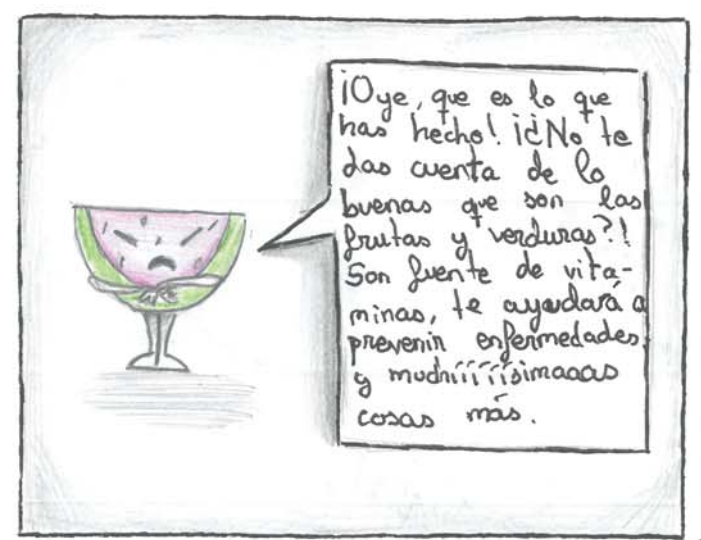 ¡Oye, que es lo que
has hecho! ¡¿No te
das cuenta de lo
buenas que son las
frutas y verduras?!
Son fuente de vita-
minas, te ayudará a
prevenir enfermedades,
y muchíííííísimaaas
cosas más.